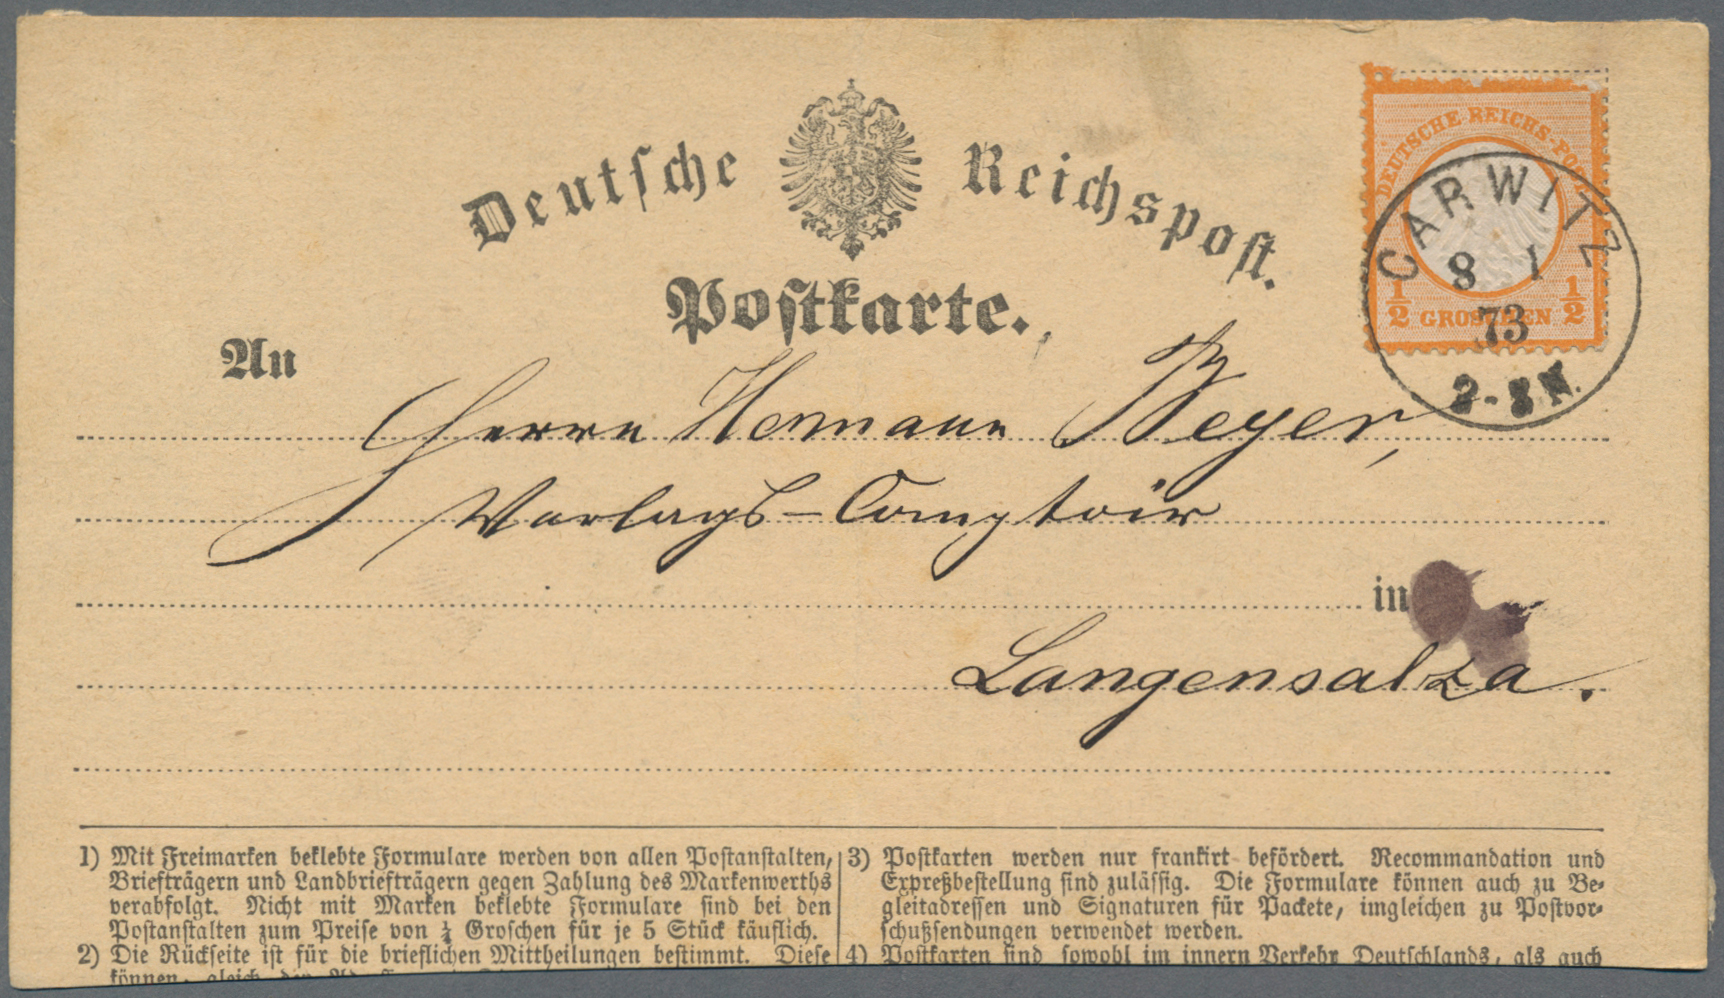 Deutsche Reichspost.
Postkarte.
DEUTSCHE REICHS-POST
1/2 GROSCHEN 1/2
CARWITZ
8 1
73
2-3 N.
An
Herrn Hermann Beyer,
Verlags-Comptoir
in
Langensalza.
1) Mit Freimarken beklebte Formulare werden von allen Postanstalten,
Briefträgern und Landbriefträgern gegen Zahlung des Markenwerths
verabfolgt. Nicht mit Marken beklebte Formulare sind bei den
Postanstalten zum Preise von ¼ Groschen für je 5 Stück käuflich.
2) Die Rückseite ist für die brieflichen Mittheilungen bestimmt. Diese
können, gleich der
3) Postkarten werden nur frankirt befördert. Recommandation und
Expreßbestellung sind zulässig. Die Formulare können auch zu Be-
gleitadressen und Signaturen für Packete, imgleichen zu Postvor-
schußsendungen verwendet werden.
4) Postkarten sind sowohl im innern Verkehr Deutschlands, als auch